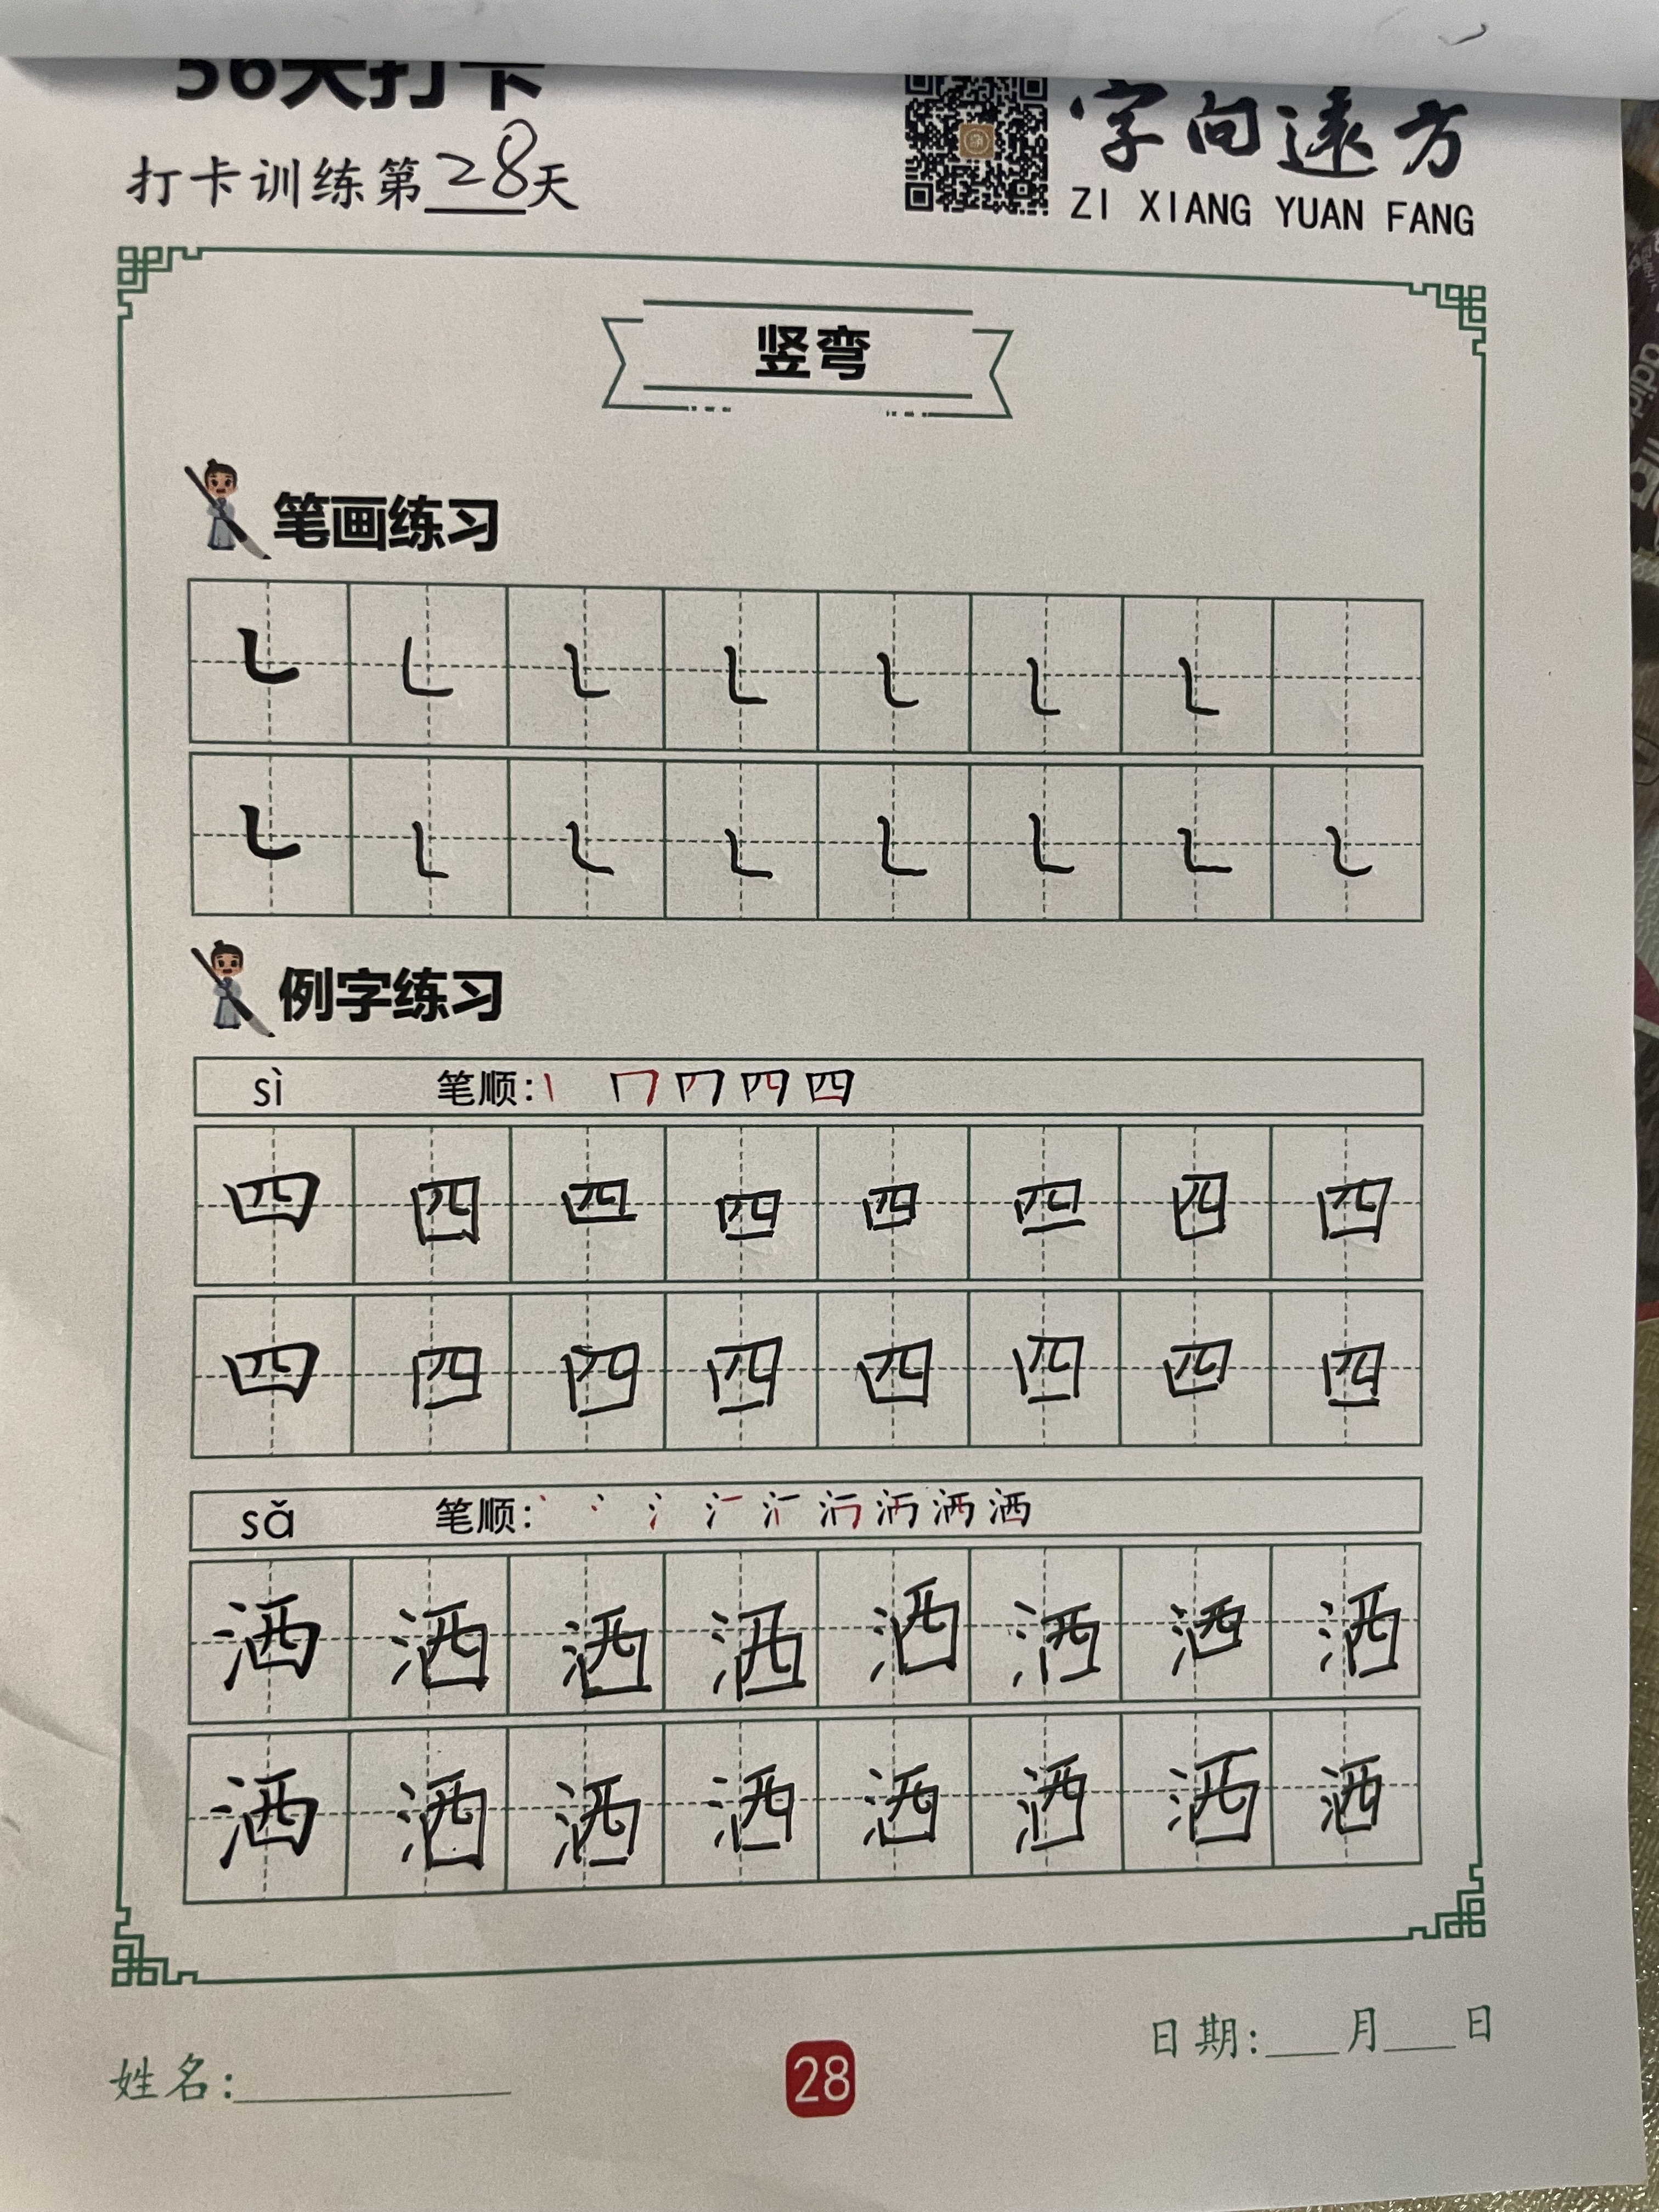 56天打卡
打卡训练第28天
字向远方
ZI XIANG YUAN FANG
竖弯
笔画练习
㇄ ㇄ ㇄ ㇄ ㇄ ㇄ ㇄
㇄ ㇄ ㇄ ㇄ ㇄ ㇄ ㇄ ㇄
例字练习
sì 笔顺: 四
四 四 四 四 四 四 四 四
四 四 四 四 四 四 四 四
sǎ 笔顺: 洒
洒 洒 洒 洒 洒 洒 洒 洒
洒 洒 洒 洒 洒 洒 洒 洒
姓名:
28
日期:___月___日